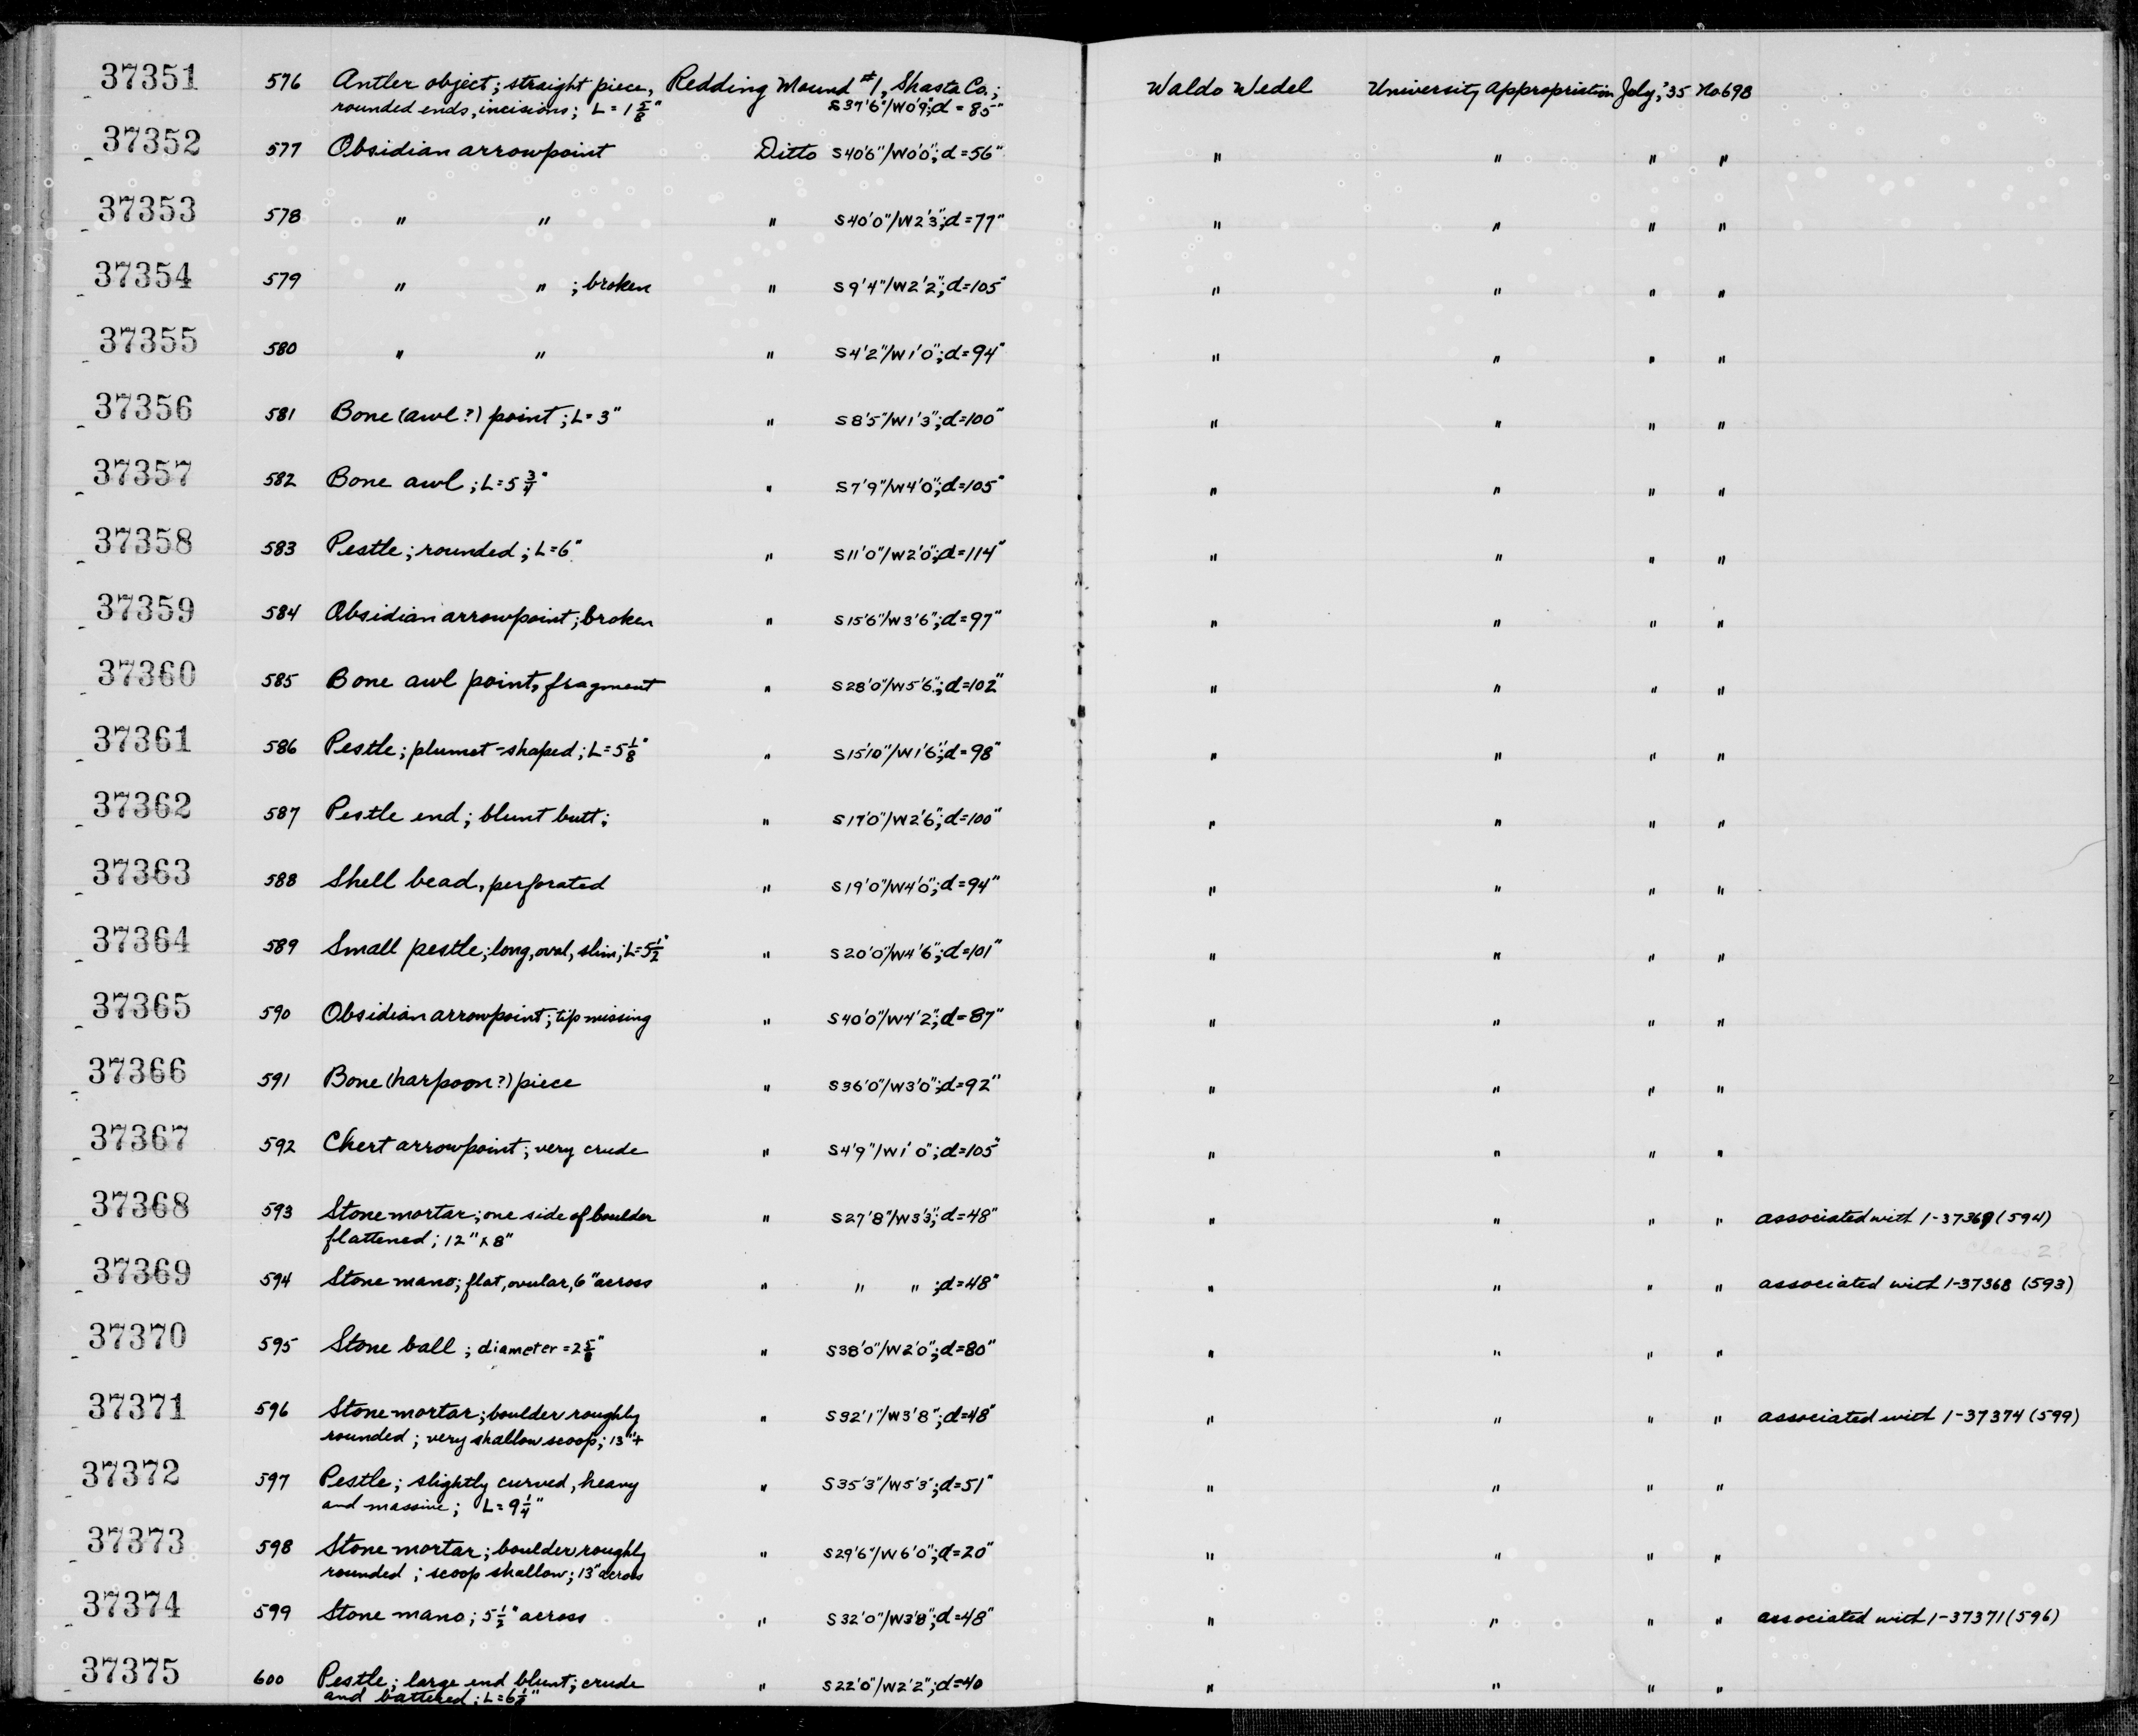 37351 576 Antler object; straight piece, Redding Mound #1, Shasta Co.; Waldo Wedel University Appropriation July, '35 No 698
rounded ends, incisions; L = 1 5/8" S37'6"/W0'9"; d = 85"
37352 577 Obsidian arrowpoint Ditto S40'6"/W0'0"; d=56" " " " "
37353 578 " " " S40'0"/W2'3"; d=77" " " " "
37354 579 " " ; broken " S9'4"/W2'2"; d=105" " " " "
37355 580 " " " S4'2"/W1'0"; d=94" " " " "
37356 581 Bone (awl?) point; L=3" " S8'5"/W1'3"; d=100" " " " "
37357 582 Bone awl; L=5 3/4" " S7'9"/W4'0"; d=105" " " " "
37358 583 Pestle; rounded; L=6" " S11'0"/W2'0"; d=114" " " " "
37359 584 Obsidian arrowpoint; broken " S15'6"/W3'6"; d=97" " " " "
37360 585 Bone awl point, fragment " S28'0"/W5'6"; d=102" " " " "
37361 586 Pestle; plumet-shaped; L=5 1/8" " S15'10"/W1'6"; d=98" " " " "
37362 587 Pestle end; blunt butt; " S17'0"/W2'6"; d=100" " " " "
37363 588 Shell bead, perforated " S19'0"/W4'0"; d=94" " " " "
37364 589 Small pestle; long, oval, slim; L=5 1/2" " S20'0"/W4'6"; d=101" " " " "
37365 590 Obsidian arrowpoint; tip missing " S40'0"/W4'2"; d=87" " " " "
37366 591 Bone (harpoon?) piece " S36'0"/W3'0"; d=92" " " " "
37367 592 Chert arrowpoint; very crude " S4'9"/W1'0"; d=105" " " " "
37368 593 Stone mortar; one side of boulder " S27'8"/W3'3"; d=48" " " " " associated with 1-37369 (594)
flattened; 12" x 8"
37369 594 Stone mano; flat, ovular, 6" across " " " ; d=48" " " " " associated with 1-37368 (593)
37370 595 Stone ball; diameter = 2 5/8" " S38'0"/W2'0"; d=80" " " " "
37371 596 Stone mortar; boulder roughly " S32'1"/W3'8"; d=48" " " " " associated with 1-37374 (599)
rounded; very shallow scoop; 13"+
37372 597 Pestle; slightly curved, heavy " S35'3"/W5'3"; d=51" " " " "
and massive; L=9 1/4"
37373 598 Stone mortar; boulder roughly " S29'6"/W6'0"; d=20" " " " "
rounded; scoop shallow; 13" across
37374 599 Stone mano; 5 1/2" across " S32'0"/W3'8"; d=48" " " " " associated with 1-37371 (596)
37375 600 Pestle; large end blunt; crude " S22'0"/W2'2"; d=40 " " " "
and battered; L=6 1/2"